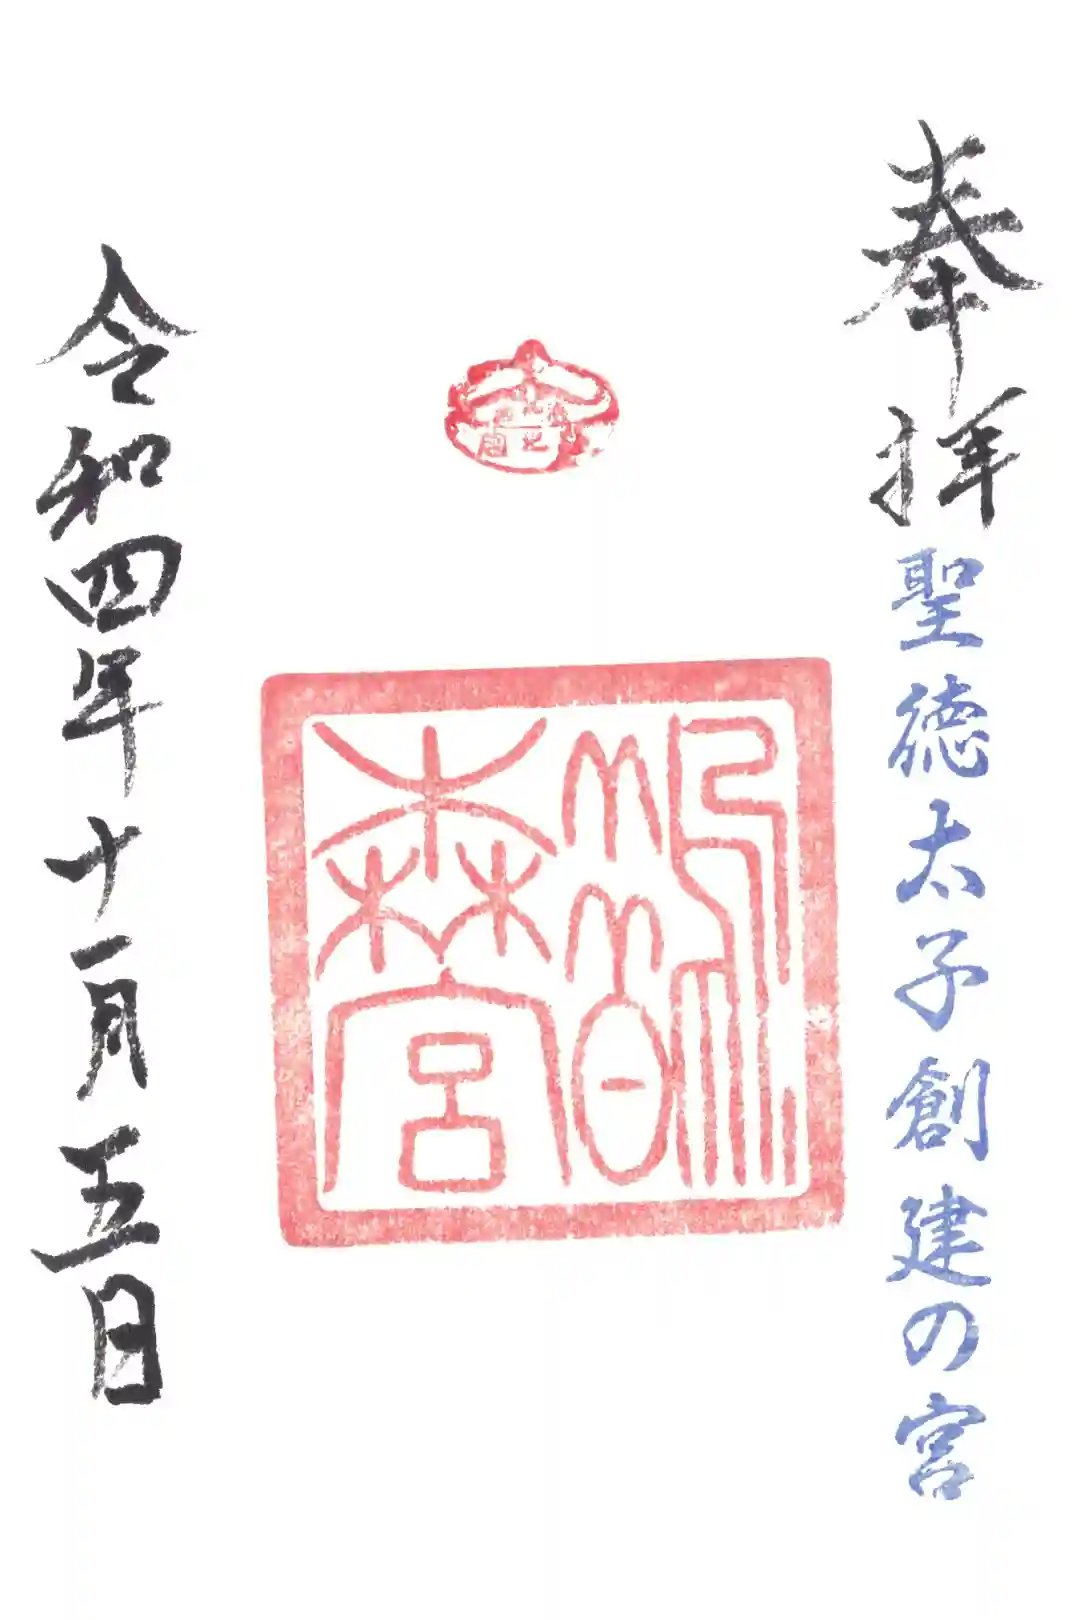 奉拝 聖徳太子創建の宮
鵲
森宮
令和四年十一月五日